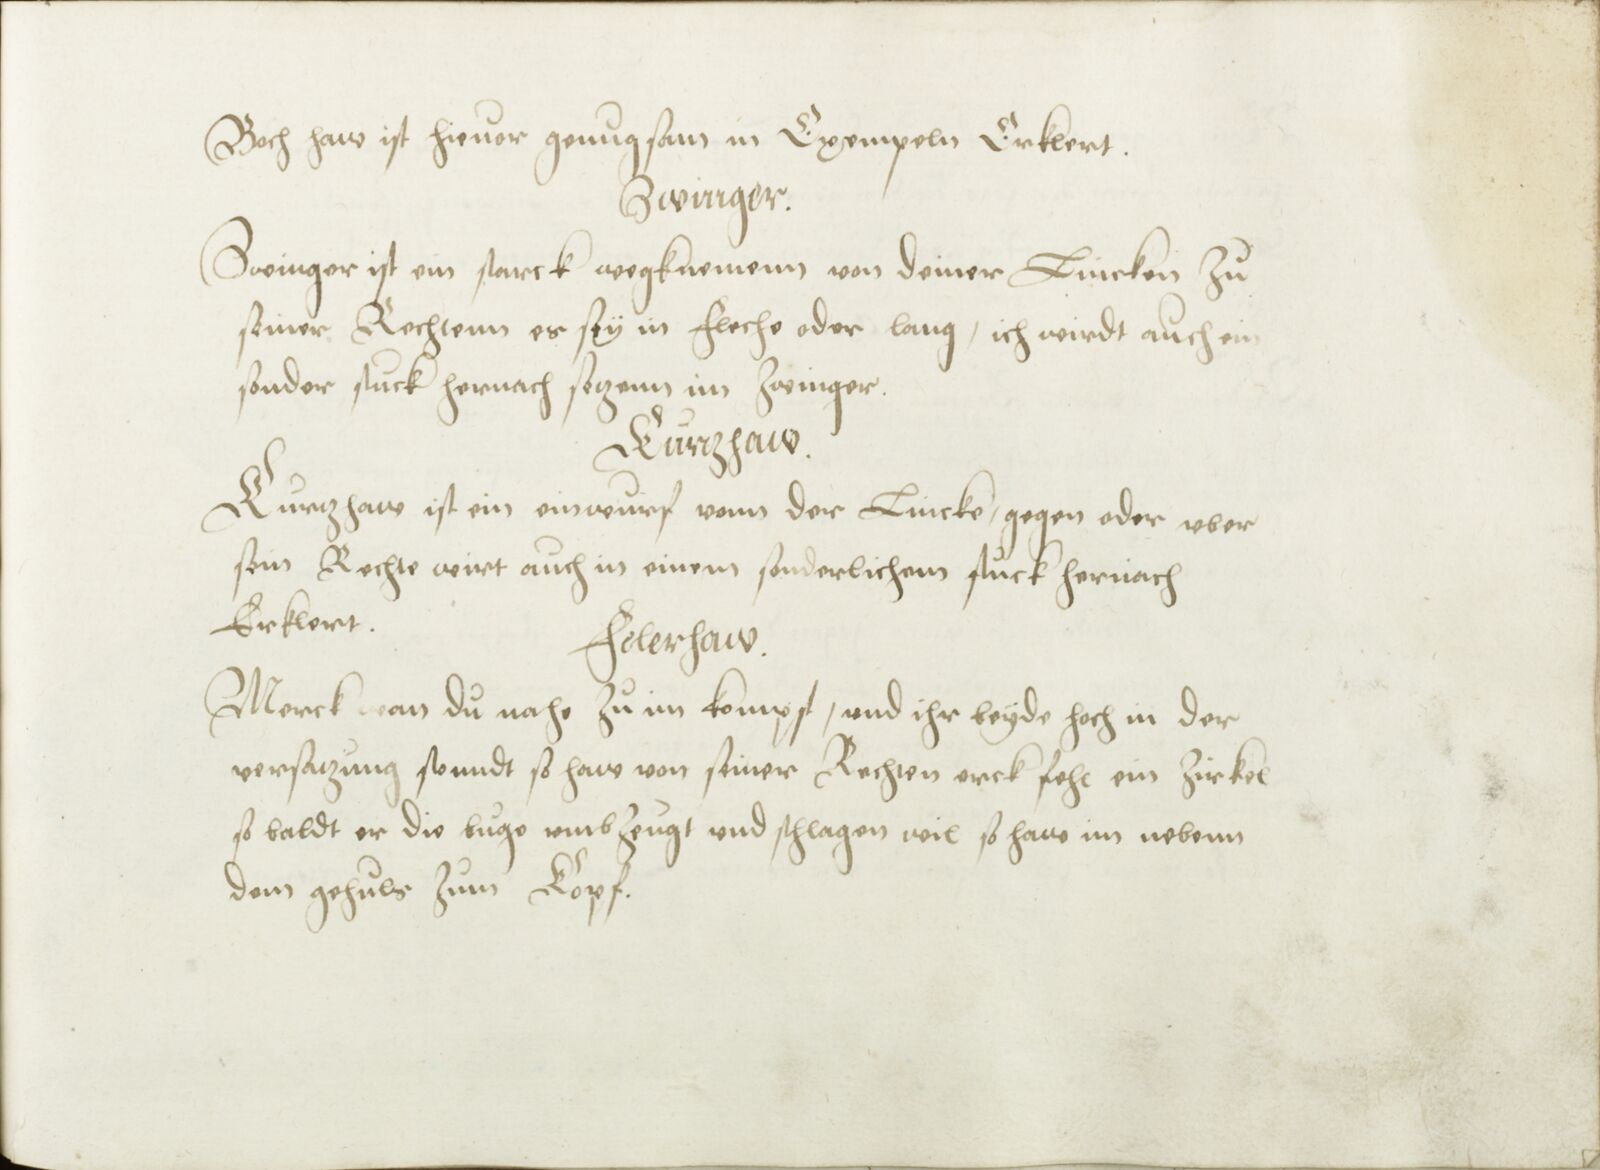 Boch haw ist hieuor genugsam in Exempeln Erklert.
Zwinger.
Zwinger ist ein starck wegknemenn von deiner Lincken zu
seiner Rechtenn es seÿ in fleche oder lang, ich wirdt auch ein
sonder stuck hernach setzenn im zwinger.
Kurtzhaw.
Kurtzhaw ist ein einwurf vonn der Lincke, gegen oder vber
sein Rechte wirt auch in einem sonderlichem stuck hernach
Erklert.
Felerhaw.
Merck wan du nahe zu im kompst, vnd ihr beÿde hoch in der
versatzung so haw von seiner Rechten fehl ein Zirkel
so baldt er die vmbzeugt vnd schlagen wil so haw im nebenn
dem gehulz zum Kopf.